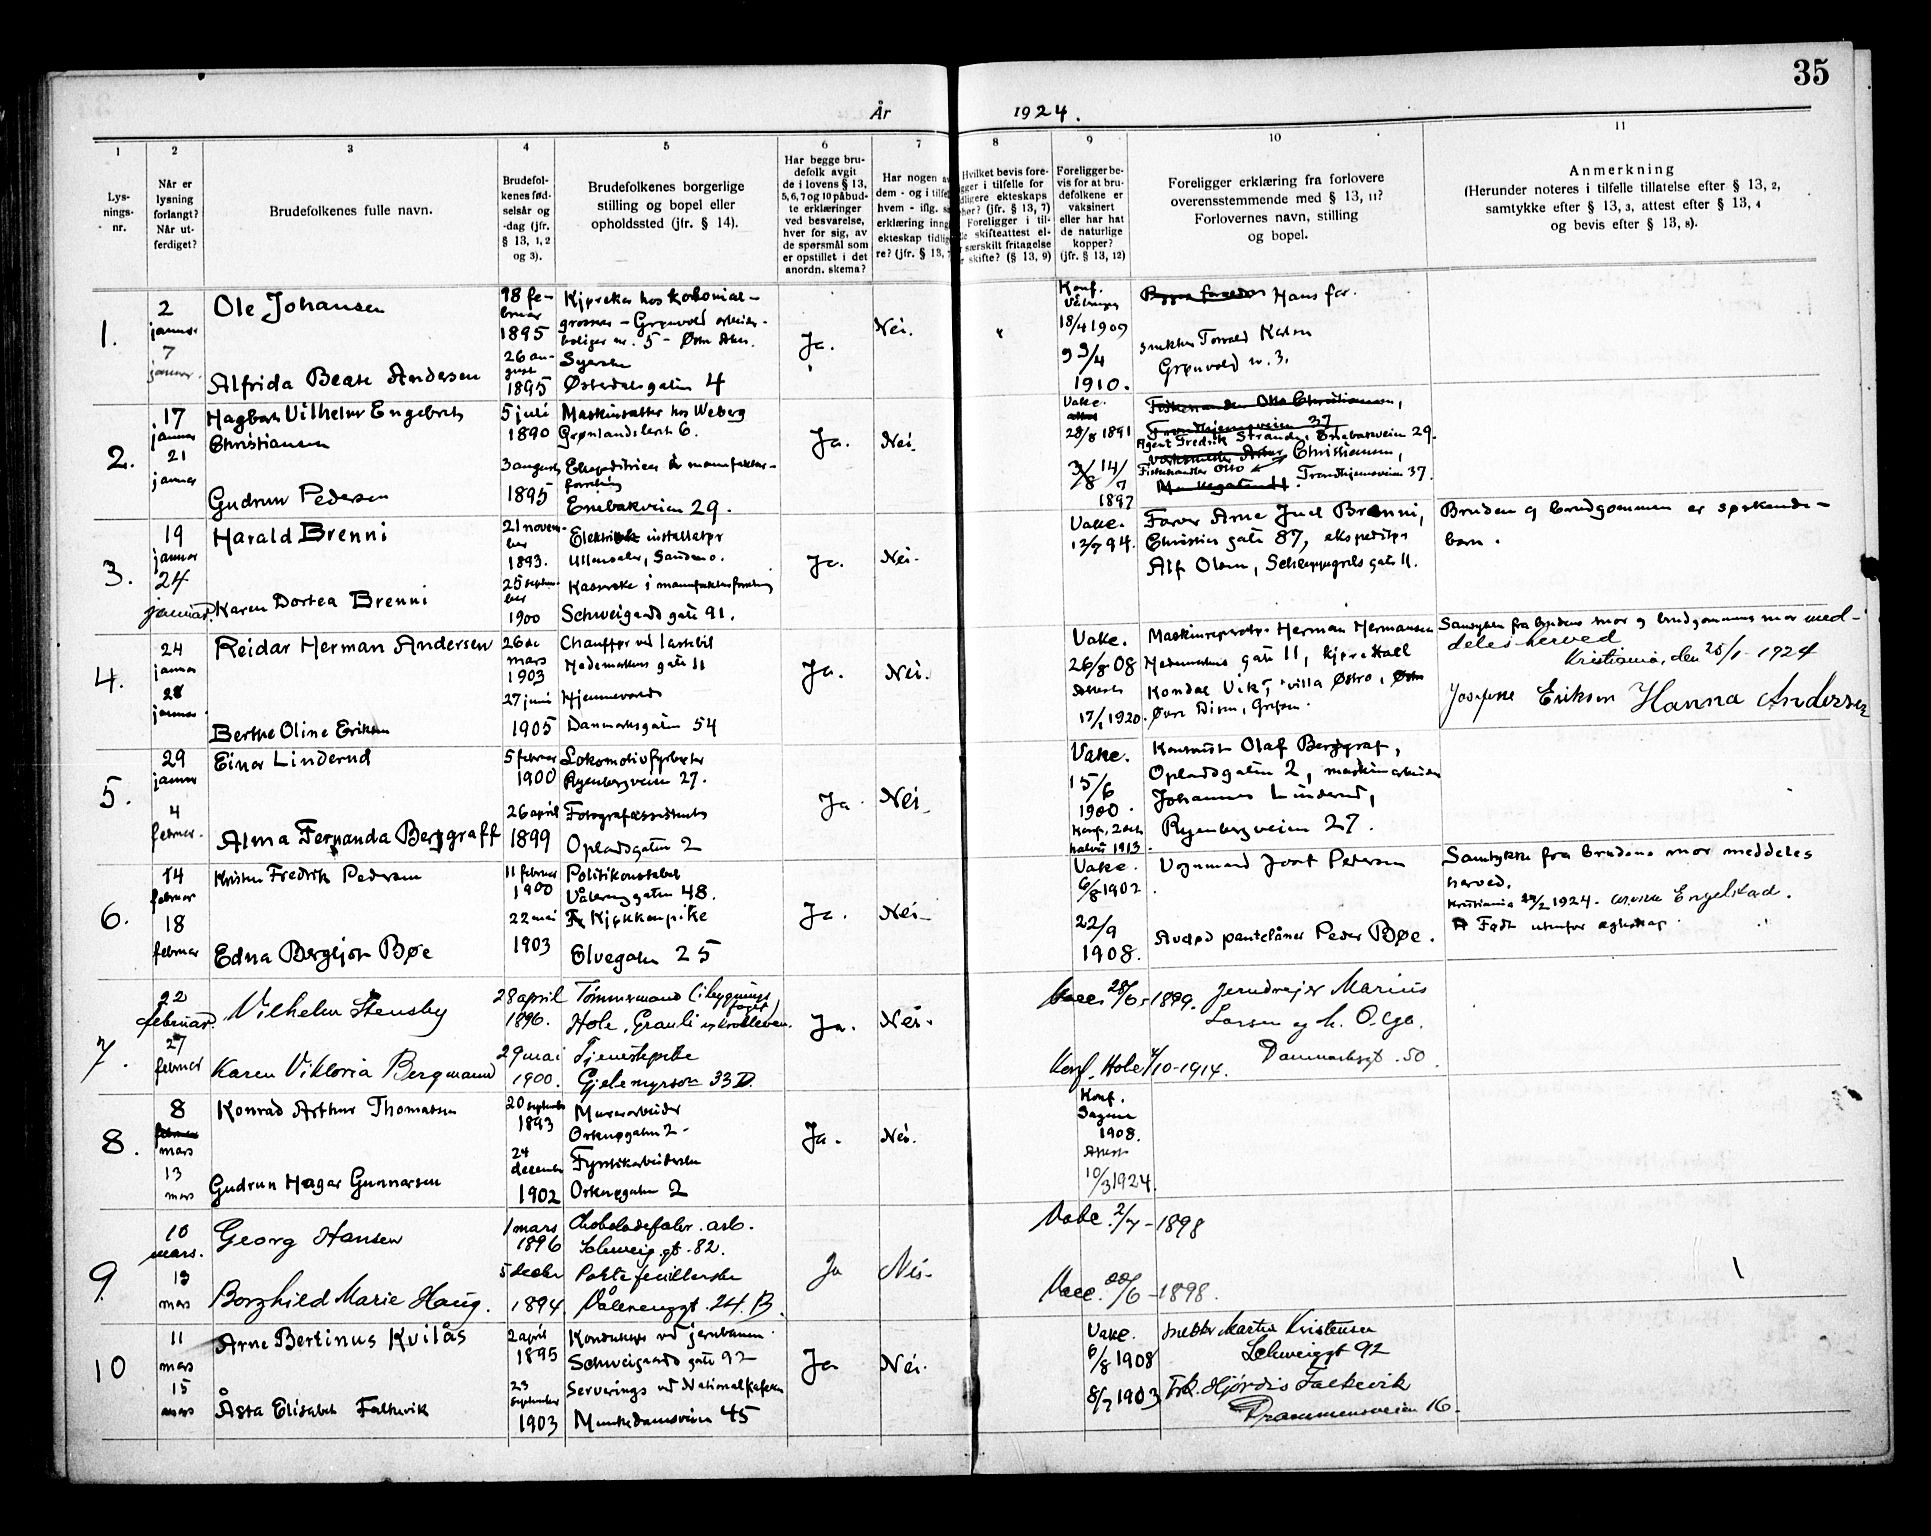 35
År 1924.
1 2 3 4 5 6 7 8 9 10 11
Lys-
nings-
nr.
Når er
lysning
forlangt?
Når ut-
ferdiget?
Brudefolkenes fulle navn.
Brudefol-
kenes fød-
selsår og
-dag (jfr.
§ 13, 1, 2
og 3).
Brudefolkenes borgerlige
stilling og bopel eller
opholdssted (jfr. § 14).
Har begge bru-
defolk avgit
de i lovens § 13,
5, 6, 7 og 10 påbud-
te erklæringer
ved besvarelse,
hver for sig, av
de spørsmål som
er opstillet i det
anordn. skema?
Har nogen av
dem - og i tilfe
hvem - iflg. sa
erklæring inng
ekteskap tidlig
re? (jfr. § 13, 7
Hvilket bevis fore-
gger i tilfelle for
dligere ekteskaps
phør? (jfr. § 13, 7)
Foreligger i til-
lle skifteattest el-
r særskilt fritagelse
r skifte? (§ 13, 9)
Foreligger be-
vis for at bru-
defolkene er
vaksinert
eller har hat
de naturlige
kopper?
(jfr. § 13, 12)
Foreligger erklæring fra forlovere
overensstemmende med § 13, 11?
Forlovernes navn, stilling
og bopel.
Anmerkning
(Herunder noteres i tilfelle tillatelse efter § 13, 2,
samtykke efter § 13, 3, attest efter § 13, 4
og bevis efter § 13, 8).
1.
2
januar
7
januar.
Ole Johansen
Alfrida Beate Andersen
18 fe-
bruar
1895
26 au-
gust
1895
Kjørekar hos kolonial-
grosserer - Grønvold arbeider-
boliger nr. 5 - Østre Aker.
Syerske
Østerdalsgaten 4
Ja.
Nei.
Konf.
Vålerengen
18/4 1909
3/4
1910.
Hans far.
snekker Torvald
Grønvold nr. 3.
2.
17
januar
21
januar
Hagbart Vilhelm Engebret
Christiansen
Gudrun Pedersen
5 juli
1890
3 august
1895
Maskinsætter hos Weberg
Grønlandsleret 6.
Ekspeditrice i manufaktur-
forretning
Enebakveien 29.
Ja.
Nei.
Vakc.
attest
28/8 1891
14/
7
1897
Fiskehandler Otto Christiansen,
Trondhjemsveien 37
Agent Fredrik Strande, Enebakveien 29.
Christiansen,
Fiskehandler Otto
Trondhjemsveien 37.
3.
19
januar
24
januar.
Harald Brenni
Karen Dortea Brenni
21 novem-
ber
1893.
25 septem-
ber
1900
Elektrisk installatør
Ullensaker, Sandmo.
Kasserske i manufakturforretning
Schweigaard gate 91.
Ja.
Nei.
Vakc.
12/7 94.
Farver Arne Juel Brenni,
Christies gate 87, ekspeditør
Alf Olsen, Schleppegrels gate 11.
Bruden og brudgommen er søskende-
barn.
4.
24
januar
28
januar.
Reidar Herman Andersen
Berthe Oline Eriksen
26 de
mars
1903
27 juni
1905
Chauffør ved lastebil
Hedemarkens gate 11
Hjemmeværende
Danmarksgaten 54
Ja.
Nei.
Vakc.
26/8 08
Attest
17/1 1920.
Maskinreparatør Herman Hermansen
Hedemarkens gate 11, kjørekall
Kondal Vik, villa Østro, Østre
Øvre Disen, Grefsen.
Samtykke fra brudens mor og brudgommens mor med-
deles herved
Kristiania, den 25/1 - 1924
Josefine Eriksen Hanna Andersen
5.
29
januar
4
februar.
Einar Linderud
Alma Fernanda Berggraff
5 februar
1900
26 april
1899
Lokomotivfyrbøter
Ryenbergveien 27.
Fotografassistent
Oplandsgaten 2
Ja.
Nei.
Vakc.
15/6
1900.
Konf. 2 okt.
1913.
Kontorist Olaf Berggraf,
Oplandsgaten 2, maskinarbeider
Johannes Linderud,
Ryenbergveien 27.
6.
14
februar
18
februar
Kristen Fredrik Pedersen
Edna Bergljot Bøe
11 februar
1900
22 mai
1903
Politikonstabel
Vålerenggaten 48.
Kjøkkenpike
Elvegaten 25
Ja.
Nei.
Vakc.
6/8 1902
22/9
1908.
Vognmand Jvar Pedersen
Avdød pantelåner Peder Bøe.
Samtykke fra brudens mor meddeles
herved.
Kristiania 1924. Engelstad.
Født utenfor egteskap
7.
22
februar.
27
februar
Vilhelm Stensby
Karen Viktoria Bergmand
28 april
1896.
29 mai
1900.
Tømmermand (i bygnings
faget)
Hole, Granli v/ Krokkleven.
Tjenestepike
Gjetemyrsvn 33 D.
Ja.
Nei.
Vacc. 28/6 - 1899.
Konf. Hole 4/10 - 1914.
Jerndreier Marius
Larsen og h. Olga.
Danmarksgt. 50
8.
8
februar
mars
13
mars
Konrad Arthur Thomassen
Gudrun Hagar Gunnarsen
20 september
1893
24
desember
1902
Murerarbeider
Orknøgaten 2 -
Fyrstikarbeiderske
Orknøgaten 2
Ja.
Nei.
Konf.
Sagene
1908.
Attest
10/3 1924.
9.
10
mars.
13
mars
Georg Hansen
Borghild Marie Haug.
1 mars
1896
5 decbr
1894
Chokoladefabr. arb.
Schweig.gt. 82.
Portefeuillerske
Vålerenggt. 24. B.
Ja
Nei.
Vakc. 2/7 - 1898
Vacc. /6 - 1898.
10
11
mars
15
mars
Arne Bertinus Kvilås
Åsta Elisabet Falkevik
2 april
1895
23
september
1903
Konduktør ved jernbanen.
Schweigaards gate 92
Serverings ved Nationalkafeen
Munkedamsveien 45
Ja
Nei.
Vakc.
6/8 1908
8/7 1903
snekker Martin Kristensen
Schweiggt 92
Frk. Hjördis Falkevik
Drammensveien 16.